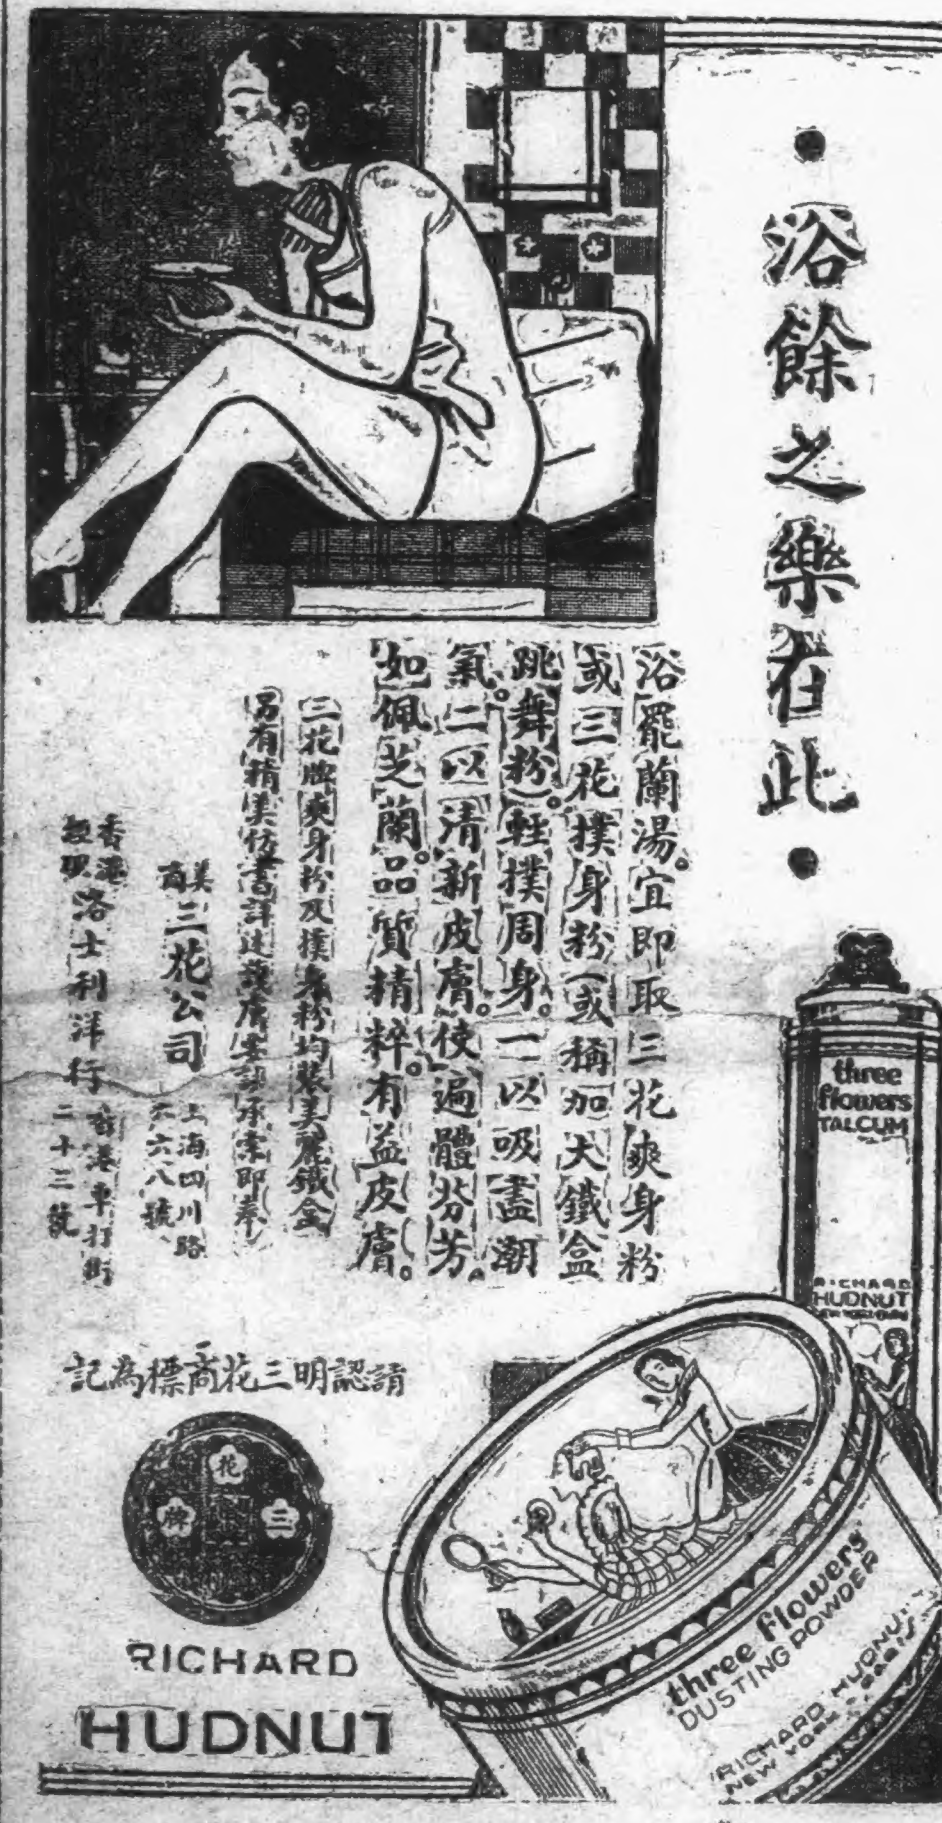 浴餘之樂在此
浴罷蘭湯。宜即取三花爽身粉
或三花撲身粉（或稱加大鐵盒
跳舞粉）。輕撲周身。一以吸盡潮
氣。二以清新皮膚。使遍體芬芳。
如佩芝蘭。品質精粹。有益皮膚。
三花牌爽身粉及撲身粉均裝美麗鐵盒
另有精美仿書詳述護膚要訣承索即奉
美商三花公司 上海四川路六六八號
香港經理洛士利洋行 香港車打街二十三號
請認明三花商標為記
三花牌
RICHARD
HUDNUT
three
flowers
TALCUM
RICHARD
HUDNUT
three flowers
DUSTING POWDER
RICHARD HUDNUT
NEW YORK PARIS